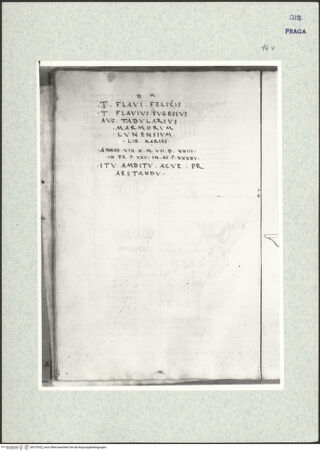 DIS
PRAGA
14 v
D M
·T· FLAVI· FELICIS
·T· FLAVIUS· SUCESSUS
AUG· TABULARIUS·
·MARMORUM
LUNENSIUM·
·LIB· KARISS·
·ANNOS· VIX· X· M· VII· D· XXIII·
·IN FR· P· XXV· IN· AG· P· XXXXV·
·ITU· AMBITU· AQUE· PR
AESTANDU·